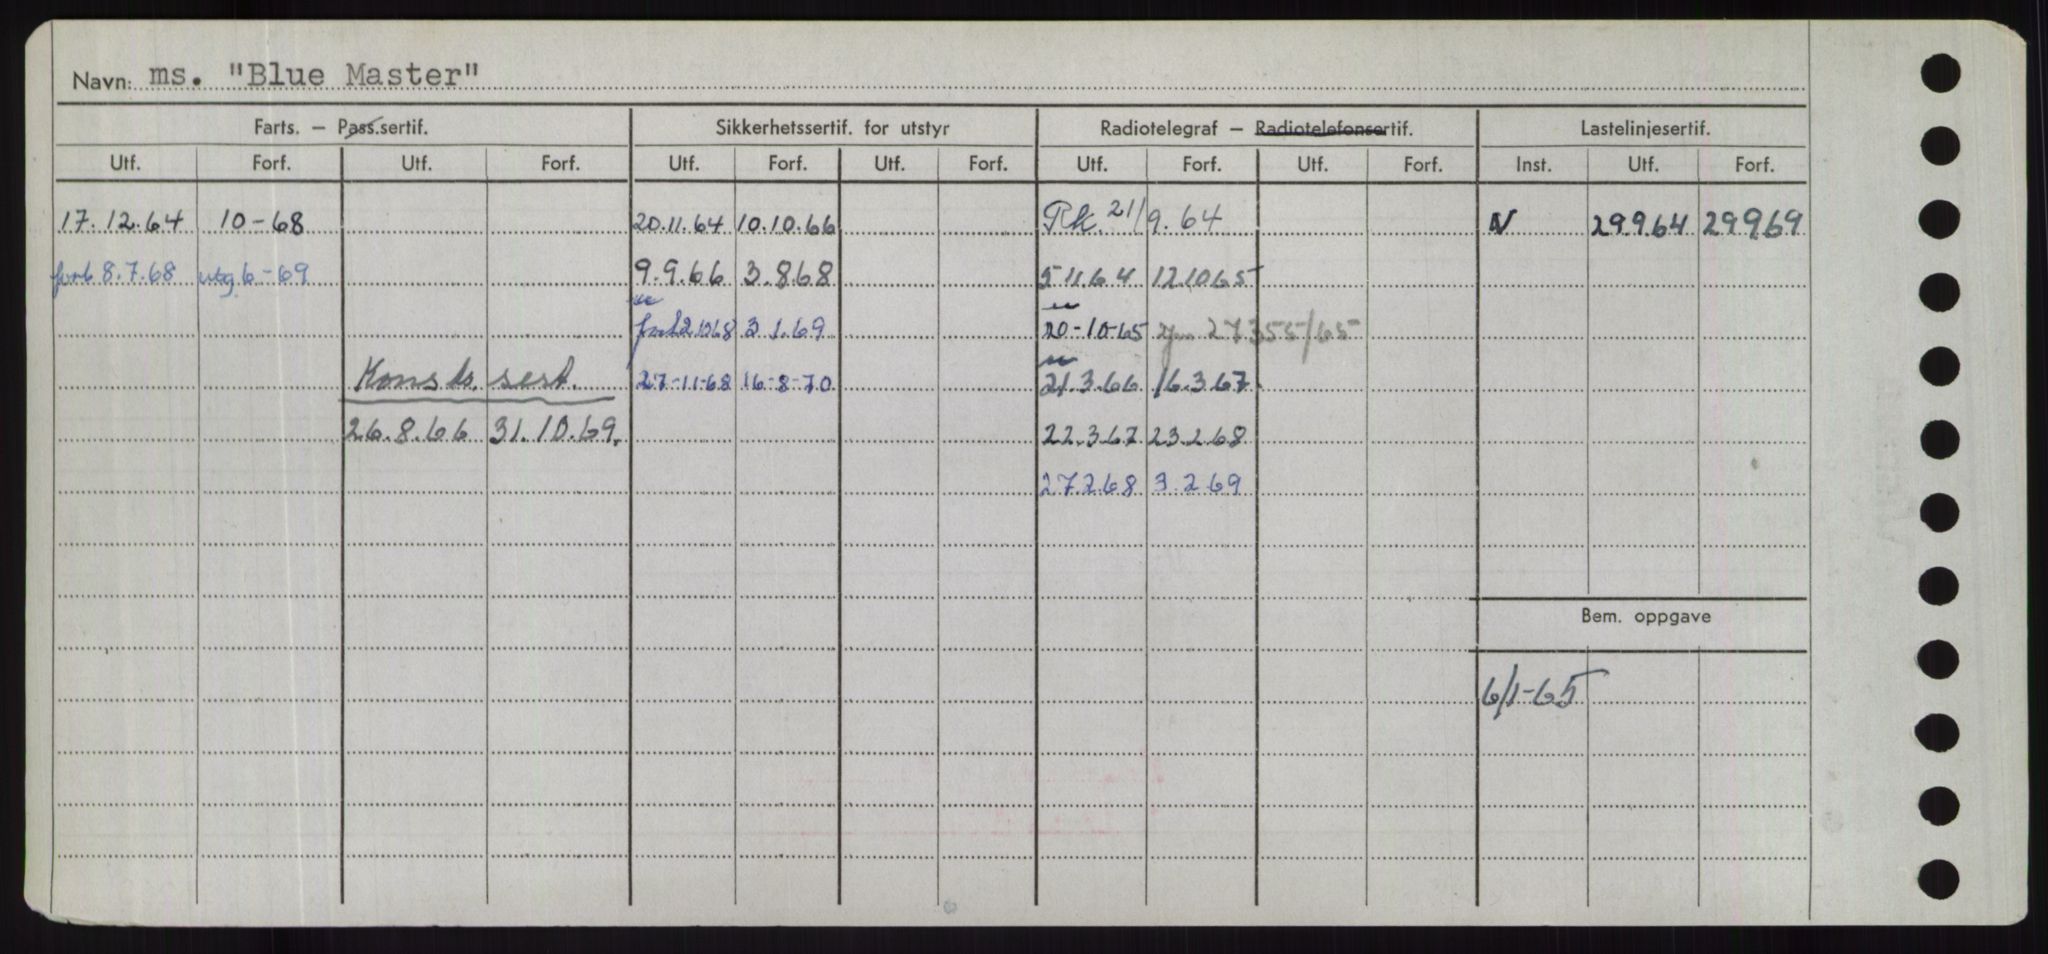 Navn: ms. "Blue Master"
Farts. - Pass.sertif. Sikkerhetssertif. for utstyr Radiotelegraf - Radiotelefonsertif. Lastelinjesertif.
Utf. Forf. Utf. Forf. Utf. Forf. Utf. Forf. Utf. Forf. Utf. Forf. Inst. Utf. Forf.
17.12.64 10-68 20.11.64 10.10.66 Pk. 21/9.64 N 29.9.64 29.9.69
forl 8.7.68 utg 6-69 9.9.66 3.8.68 5.11.64 12.10.65
3.1.69 20-10-65 27355/65
Konstr. sert. 27-11-68 16-8-70 21.3.66 16.3.67.
26.8.66 31.10.69. 22.3.67 23.2.68
27.2.68 3.2.69
Bem. oppgave
6/1-65